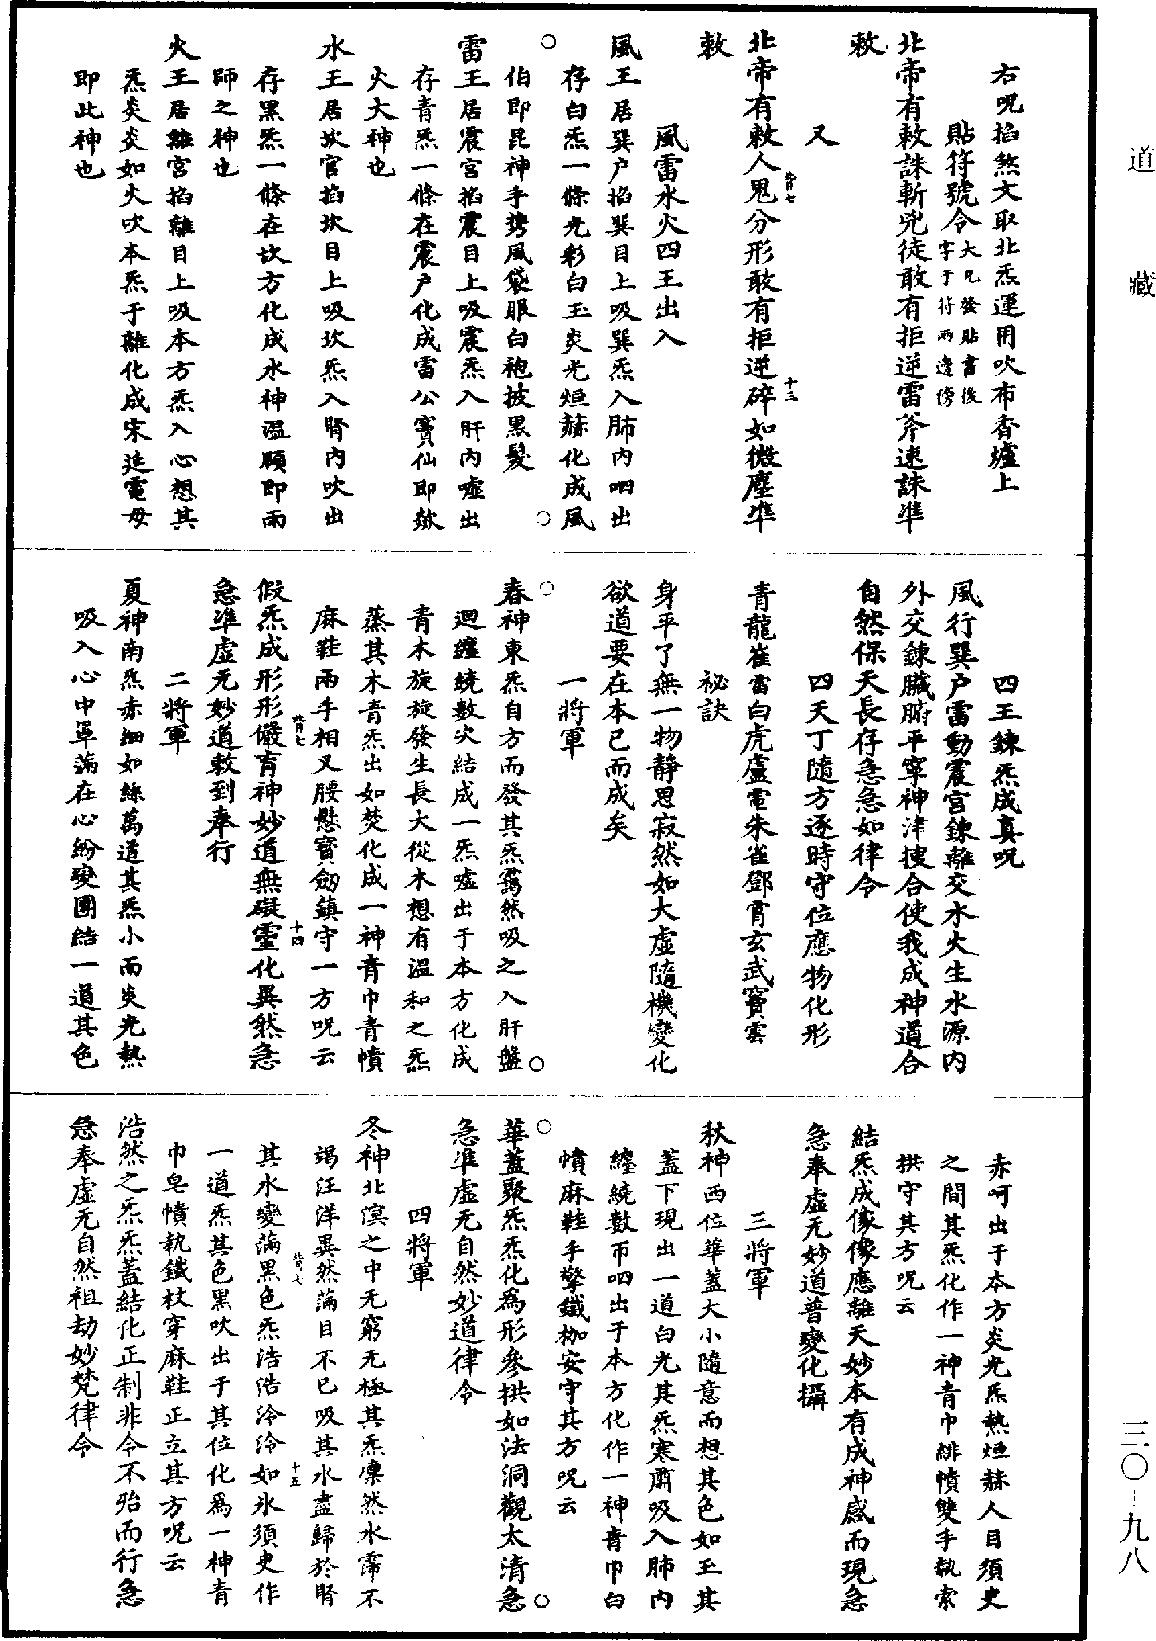 道藏
右呪掐煞文取北炁運用吹布香壚上
貼符號令大凡發貼書後字于符兩邊傍
北帝有敕誅斬兇徒敢有拒逆雷斧速誅準
敕
又
北帝有敕人鬼分形敢有拒逆碎如微塵準
敕
風雷水火四王出入
風王居巽户掐巽目上吸巽炁入肺内呬出
存白炁一條光彩白玉炎光烜赫化成風
伯即昆神手携風袋服白袍披黑髮
雷王居震宫掐震目上吸震炁入肝内噓出
存青炁一條在震户化成雷公寶仙即歘
火大神也
水王居坎宫掐坎目上吸坎炁入腎内吹出
存黑炁一條在坎方化成水神溫願即雨
師之神也
火王居離宮掐離目上吸本方炁入心想其
炁炎炎如火吹本炁于離化成宋迕電母
即此神也
風行巽户雷動震宫鍊離交水火生水源内
四王鍊炁成真呪
外交鍊臟腑平寧神津捜合使我成神道合
自然保天長存急急如律令
四天丁隨方逐時守位應物化形
青龍崔雷白虎盧電朱雀鄧霄玄武竇雲
祕訣
身平了無一物靜思寂然如大虛隨機變化
欲道要在本已而成矣
一將軍
春神東炁自方而發其炁靄然吸之入肝盤
迴纏繞數次結成一炁噓出于本方化成
青木旋旋發生長大從木想有溫和之炁
蒸其木青炁出如焚化成一神青巾青幘
麻鞋兩手相叉腰懸寶劒鎮守一方呪云
假炁成形形儼育神妙道無礙靈化異然急
急準虛无妙道敕到奉行
二將軍
夏神南炁赤細如絲萬道其炁小而炎光熱
吸入心中罩滿在心紛變團結一道其色
赤呵出于本方炎光炁熱烜赫人目須臾
之間其炁化作一神青巾緋幘雙手執索
拱守其方呪云
結炁成像像應離天妙本有成神感而現急
急奉虛无妙道普變化攝
三將軍
秋神西位華蓋大小隨意而想其色如玉其
蓋下現出一道白光其炁寒肅吸入肺内
纏繞數帀呬出于本方化作一神青巾白
幘麻鞋手擎鐵枷安守其方呪云
華蓋聚炁炁化為形參拱如法洞觀太清急
急準虛无自然妙道律令
四將軍
冬神北溟之中无窮无極其炁凜然水霈不
竭汪洋異然滿目不已吸其水盡歸於腎
其水變滿黑色炁浩浩泠泠如氷須臾作
一道炁其色黑吹出于其位化為一神青
巾皂幘執鐵杖穿麻鞋正立其方呪云
浩然之炁炁蓋結化正制非令不殆而行急
急奉虛无自然祖劫妙梵律令
三〇-九八